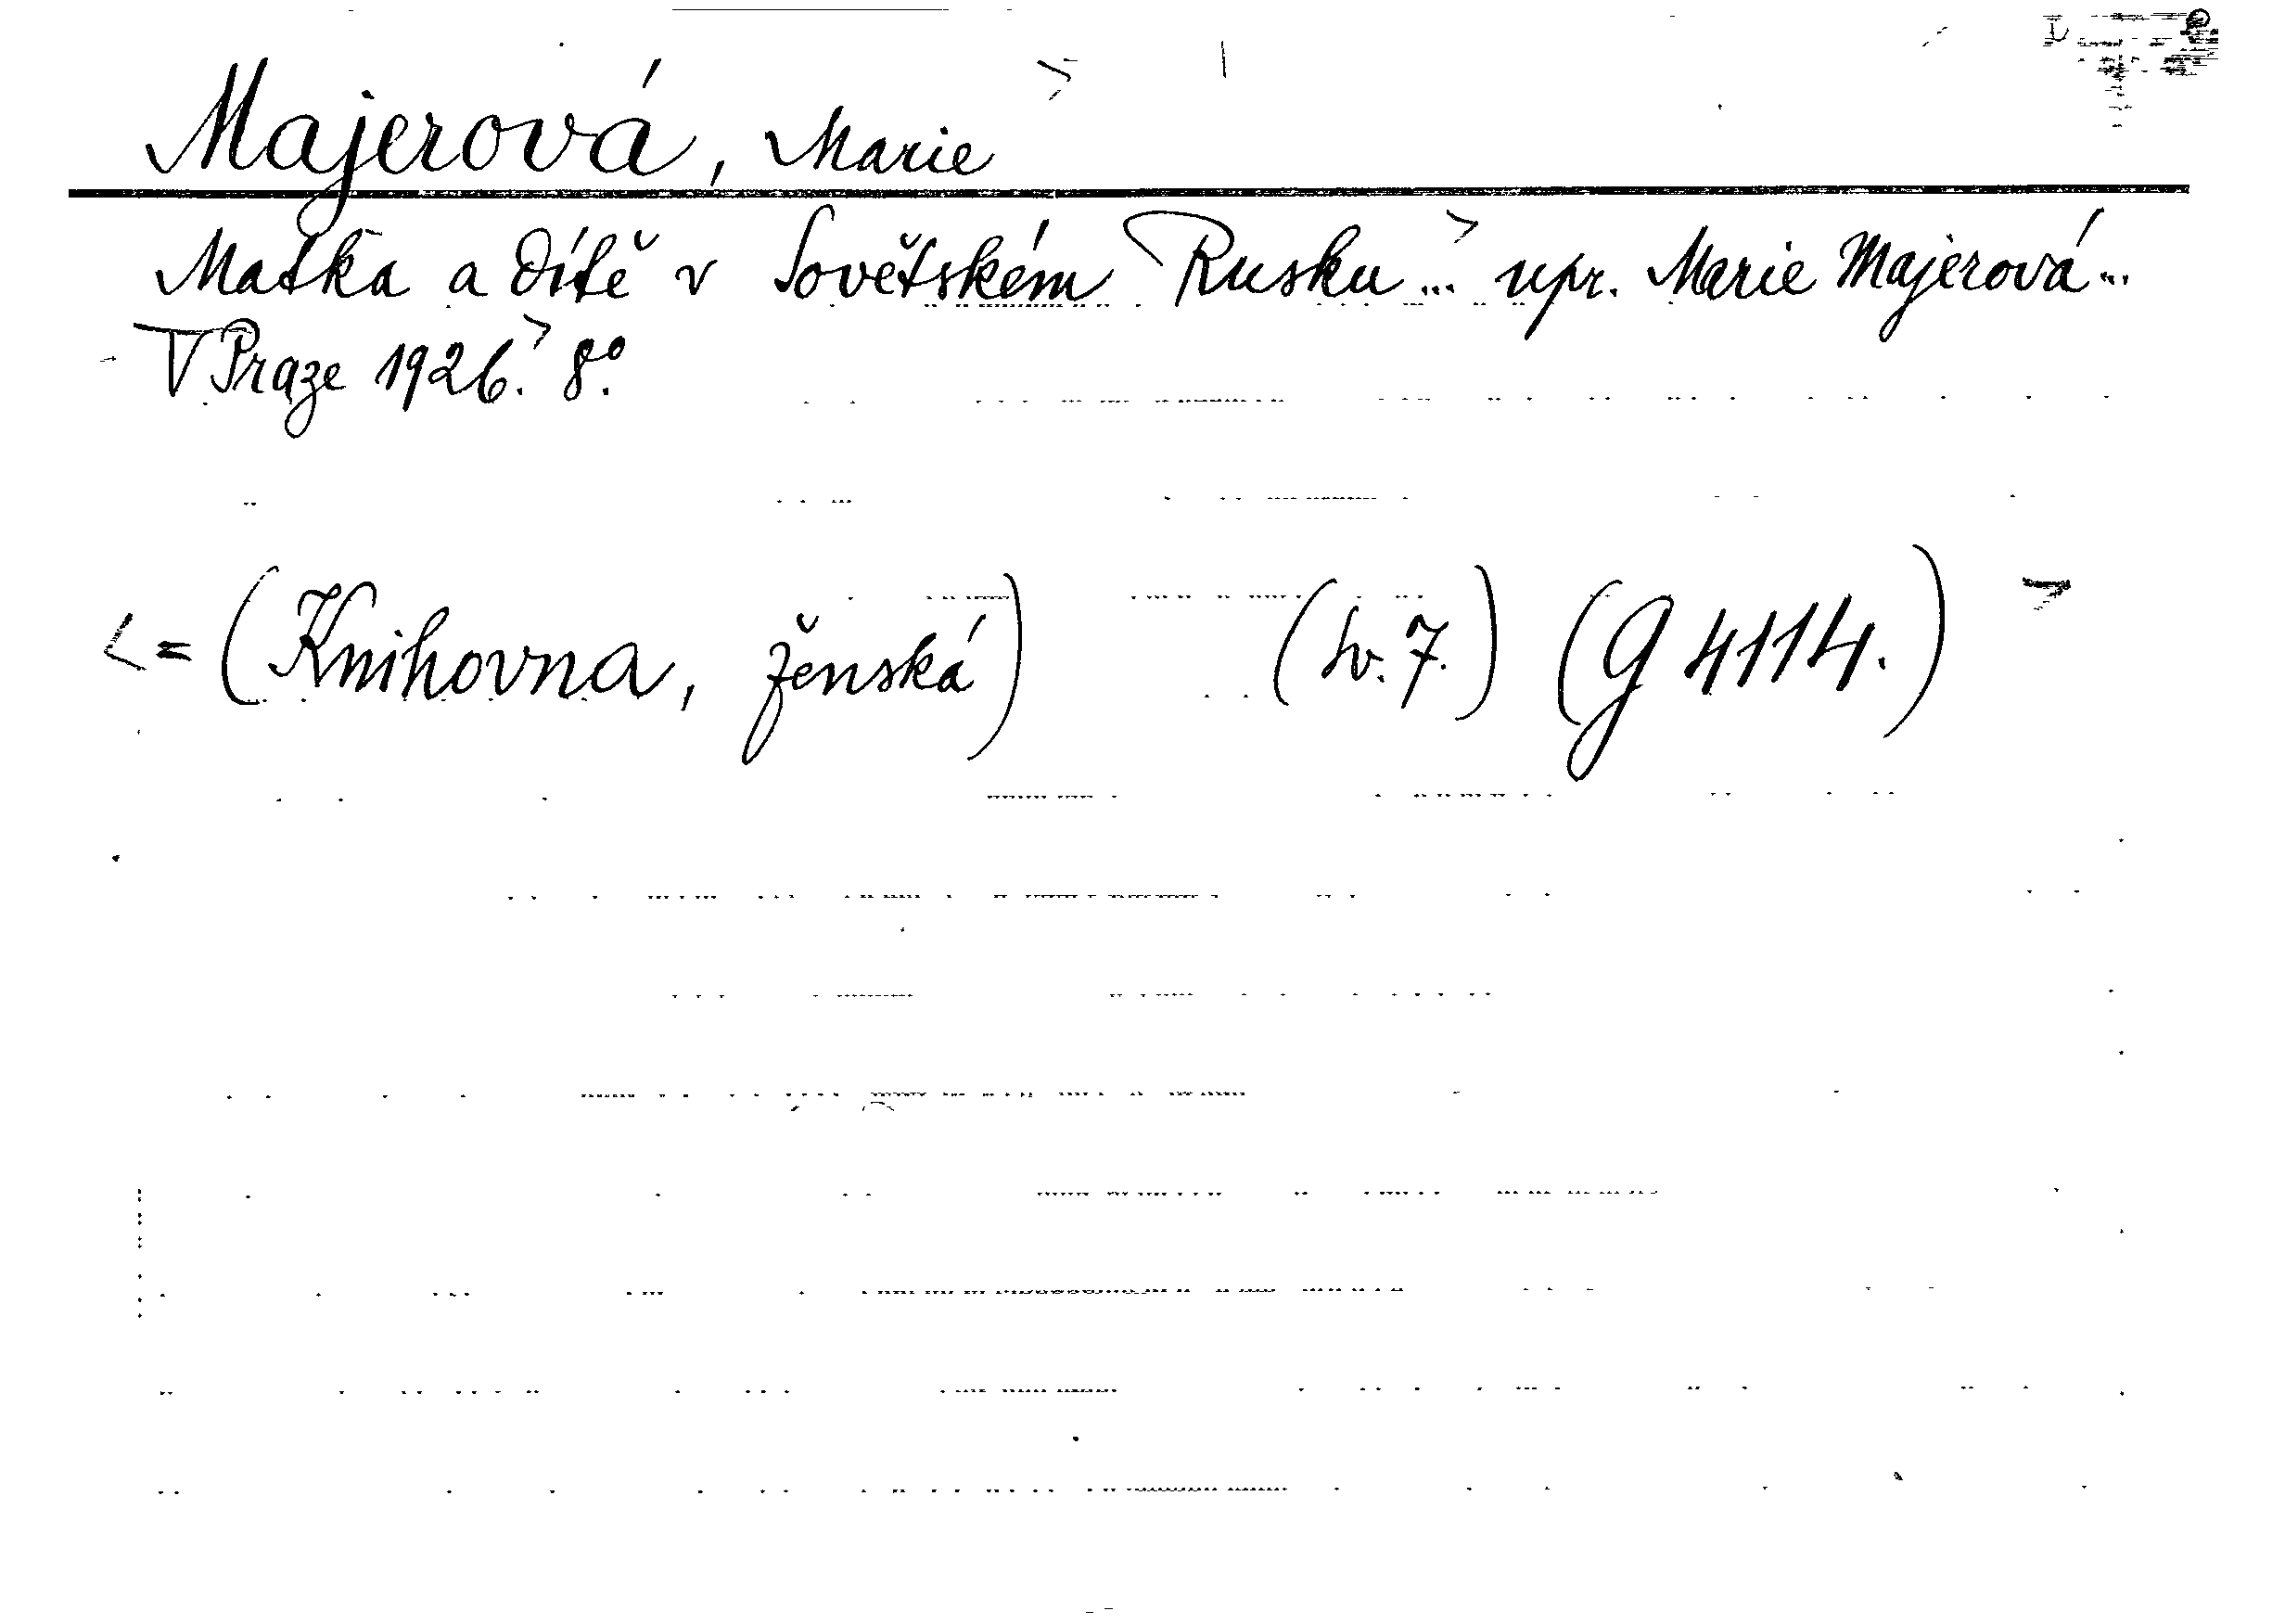 Majerová, Marie >
Matka a dítě v Sovětském Rusku...> upr. Marie Majerová...
V Praze 1926.> 8°.
<= (Knihovna, ženská) (sv. 7.) (G 4114.) >